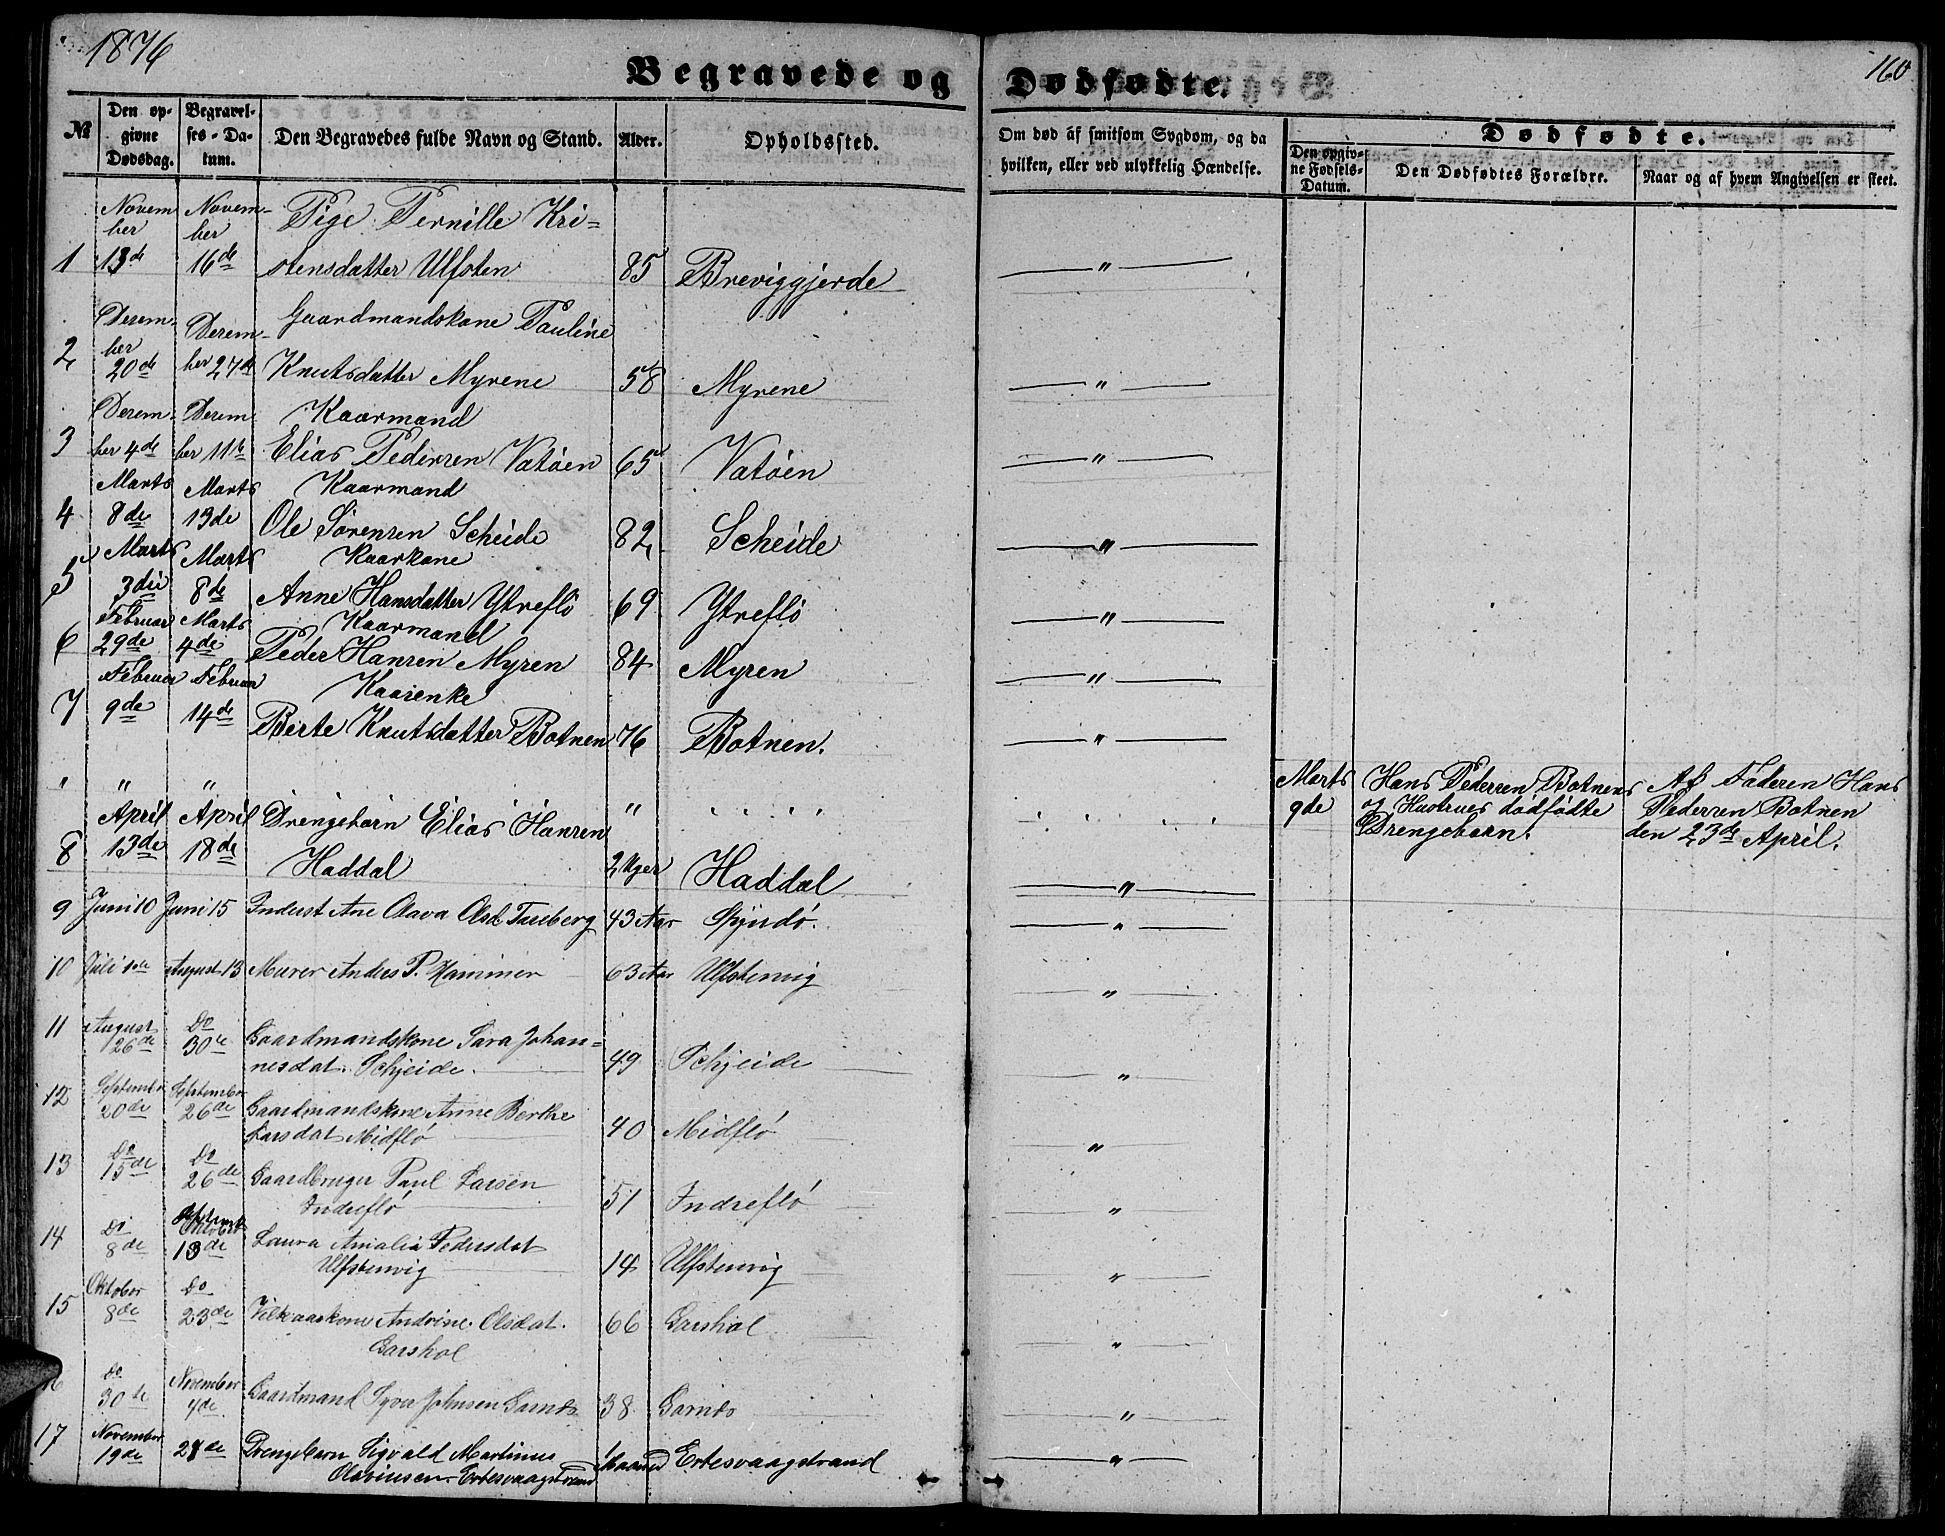 1876
160
Begravede og Dødfødte.
№
Den opgivne Dødsdag.
Begravelses-Datum.
Den Begravedes fulde Navn og Stand.
Alder.
Opholdssted.
Om død af smitsom Sygdom, og da hvilken, eller ved ulykkelig Hændelse.
Dødfødte.
Den opgivne Fødsels-Datum.
Den Dødfødtes Forældre.
Naar og af hvem Angivelsen er skeet.
Novem ber Novem- ber Pige Pernille Kri=
1 13de 16de stensdatter Ulfsten 85 Breviggjerde — " —
Decem- ber Decem- Gaardmandskone Pauline
2 20de ber 27de Knutsdatter Myrene 58 Myrene — " —
Decem- Decem- Kaarmand
3 ber 4de ber 11te Elias Pedersen Vatøen 65 Vatøen — " —
Marts Marts Kaarmand
4 8de 13de Ole Sørensen Scheide 82 Scheide — " —
Marts Marts Kaarkone
5 3die 8de Anne Hansdatter Ytreflø 69 Ytreflø — " —
Februar Marts Kaarmand
6 29de 4de Peder Hansen Myren 84 Myren — " —
Februar Februar Kaarenke
7 9de 14de Berte Knutsdatter Botnen 76 Botnen. — " —
" " " " " " " " Marts Hans Pedersen Botnens Af Faderen Hans
9de og Hustrues dødfødte Pedersen Botnen
Drengebarn. den 23de April.
April April Drengebarn Elias Hansen
8 13de 18de Haddal 2 Uger Haddal — " —
9 Juni 10 Juni 15 Inderst Ane Olava Olsd 43 Aar — " —
10 Juli August 13 Murer Andres P. Hammer 63 Aar Ulfstenvig — " —
11 August Do Gaardmandskone Sara Johan=
26de 30te nesdat. Schjeide. 49 Schjeide — " —
12 September September Gaardmandskone Anne Berthe
20de 26de Larsdat Midflø 40 Midflø — " —
13 Do Do Gaardbruger Paul Larsen
15de 26de Indreflø 51 Indreflø — " —
14 Do Oktober Laura Amalia Pedersdat
8de 13de Ulfstenvig 14 Ulfstenvig — " —
Oktober Do
15 8de 23de Vilkaarskone Andrine Olsdat.
Garshol 66 Garshol — " —
Do November
30te 4de Gaardmand Syver Johnsen Garnes 38 Garnes — " —
17 November
19de 27de Drengebarn Sigvald Martinus
Olavinsen Ertesvaagstrand 1 Maaned Ertesvaagstrand — " —